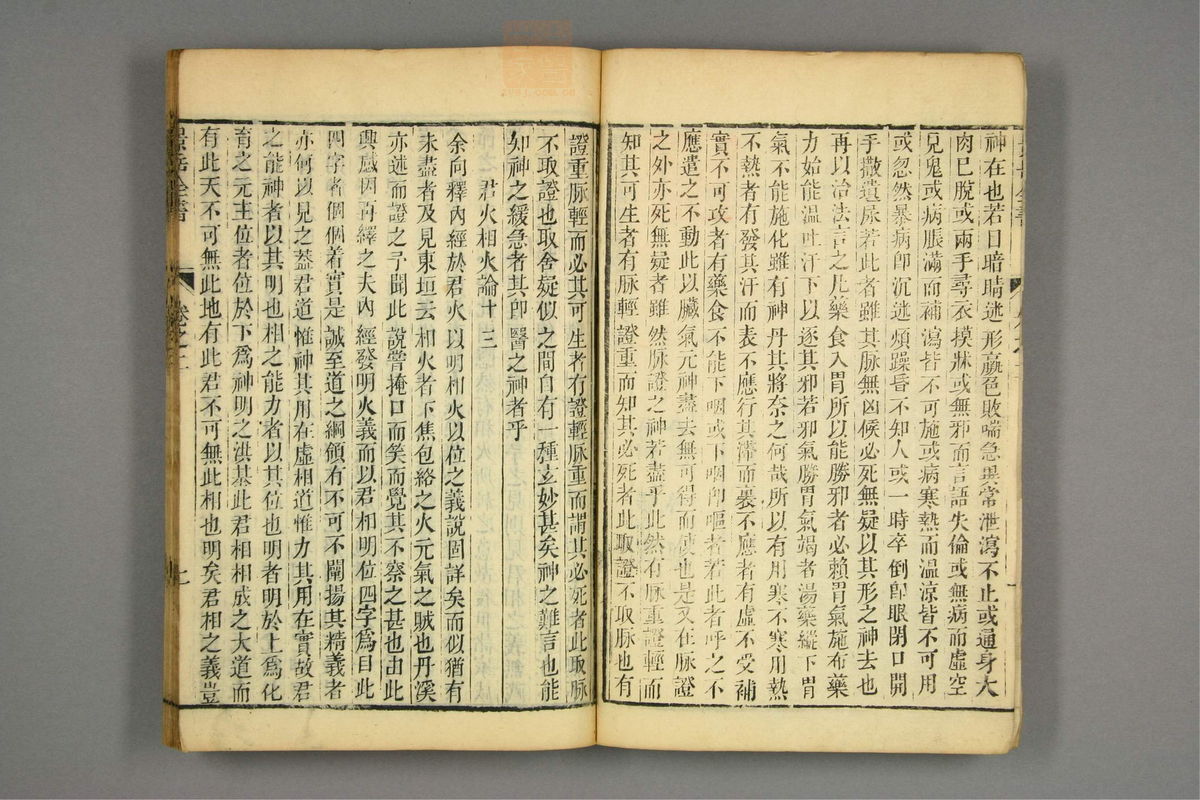 神在也若目暗睛迷形羸色敗喘急異常泄瀉不止或通身大
肉已脫或兩手尋衣摸牀或無邪而言語失倫或無病而虛空
見鬼或病脹滿而補瀉皆不可施或病寒熱而溫涼皆不可用
或忽然暴病卽沉迷煩躁昏不知人或一時卒倒卽眼閉口開
手撒遺尿若此者雖其脉無凶候必死無疑以其形之神去也
再以治法言之凡藥食入胃所以能勝邪者必賴胃氣施布藥
力始能温吐汗下以逐其邪若邪氣勝胃氣竭者湯藥縱下胃
氣不能施化雖有神丹其將奈之何哉所以有用寒不寒用熱
不熱者有發其汗而表不應行其滯而裏不應者有虛不受補
實不可攻者有藥食不能下咽或下咽卽嘔者若此者呼之不
應遣之不動此以臟氣元神盡去無可得而使也是又在脉證
之外亦死無疑者雖然脉證之神若盡乎此然有脉重證輕而
知其可生者有脉輕證重而知其必死者此取證不取脉也有
證重脉輕而必其可生者有證輕脉重而謂其必死者此取脉
不取證也取舍疑似之間自有一種玄妙甚矣神之難言也能
知神之緩急者其卽醫之神者乎
君火相火論十三
余向釋內經於君火以明相火以位之義說固詳矣而似猶有
未盡者及見東垣云相火者下焦包絡之火元氣之賊也丹溪
亦述而證之予聞此說嘗掩口而笑而覺其不察之甚也由此
興感因再繹之夫內經發明火義而以君相明位四字爲目此
四字者個個着實是誠至道之綱領有不可不闡揚其精義者
亦何以見之葢君道惟神其用在虛相道惟力其用在實故君
之能神者以其明也相之能力者以其位也明者明於上爲化
育之元主位者位於下爲神明之洪基此君相相成之大道而
有此天不可無此地有此君不可無此相也明矣君相之義豈
景岳全書
卷之二